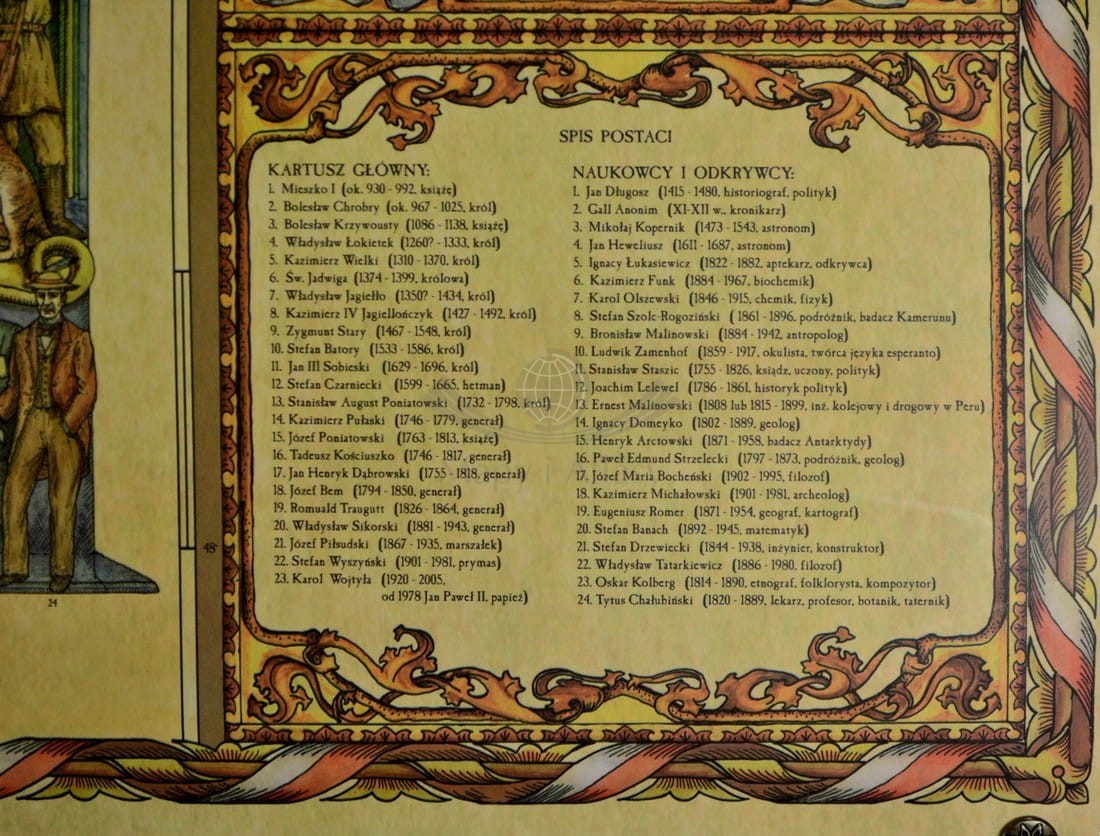 SPIS POSTACI
KARTUSZ GŁÓWNY:
1. Mieszko I (ok. 930 - 992, książę)
2. Bolesław Chrobry (ok. 967 - 1025, król)
3. Bolesław Krzywousty (1086 - 1138, książę)
4. Władysław Łokietek (1260? - 1333, król)
5. Kazimierz Wielki (1310 - 1370, król)
6. Św. Jadwiga (1374 - 1399, królowa)
7. Władysław Jagiełło (1350? - 1434, król)
8. Kazimierz IV Jagiellończyk (1427 - 1492, król)
9. Zygmunt Stary (1467 - 1548, król)
10. Stefan Batory (1533 - 1586, król)
11. Jan III Sobieski (1629 - 1696, król)
12. Stefan Czarniecki (1599 - 1665, hetman)
13. Stanisław August Poniatowski (1732 - 1798, król)
14. Kazimierz Pułaski (1746 - 1779, generał)
15. Józef Poniatowski (1763 - 1813, książę)
16. Tadeusz Kościuszko (1746 - 1817, generał)
17. Jan Henryk Dąbrowski (1755 - 1818, generał)
18. Józef Bem (1794 - 1850, generał)
19. Romuald Traugutt (1826 - 1864, generał)
20. Władysław Sikorski (1881 - 1943, generał)
21. Józef Piłsudski (1867 - 1935, marszałek)
22. Stefan Wyszyński (1901 - 1981, prymas)
23. Karol Wojtyła (1920 - 2005,
od 1978 Jan Paweł II, papież)
NAUKOWCY I ODKRYWCY:
1. Jan Długosz (1415 - 1480, historiograf, polityk)
2. Gall Anonim (XI-XII w., kronikarz)
3. Mikołaj Kopernik (1473 - 1543, astronom)
4. Jan Heweliusz (1611 - 1687, astronom)
5. Ignacy Łukasiewicz (1822 - 1882, aptekarz, odkrywca)
6. Kazimierz Funk (1884 - 1967, biochemik)
7. Karol Olszewski (1846 - 1915, chemik, fizyk)
8. Stefan Szolc-Rogoziński (1861 - 1896, podróżnik, badacz Kamerunu)
9. Bronisław Malinowski (1884 - 1942, antropolog)
10. Ludwik Zamenhof (1859 - 1917, okulista, twórca języka esperanto)
11. Stanisław Staszic (1755 - 1826, ksiądz, uczony, polityk)
12. Joachim Lelewel (1786 - 1861, historyk polityk)
13. Ernest Malinowski (1808 lub 1815 - 1899, inż. kolejowy i drogowy w Peru)
14. Ignacy Domeyko (1802 - 1889, geolog)
15. Henryk Arctowski (1871 - 1958, badacz Antarktydy)
16. Paweł Edmund Strzelecki (1797 - 1873, podróżnik, geolog)
17. Józef Maria Bocheński (1902 - 1995, filozof)
18. Kazimierz Michałowski (1901 - 1981, archeolog)
19. Eugeniusz Romer (1871 - 1954, geograf, kartograf)
20. Stefan Banach (1892 - 1945, matematyk)
21. Stefan Drzewiecki (1844 - 1938, inżynier, konstruktor)
22. Władysław Tatarkiewicz (1886 - 1980, filozof)
23. Oskar Kolberg (1814 - 1890, etnograf, folklorysta, kompozytor)
24. Tytus Chałubiński (1820 - 1889, lekarz, profesor, botanik, taternik)
48°
24